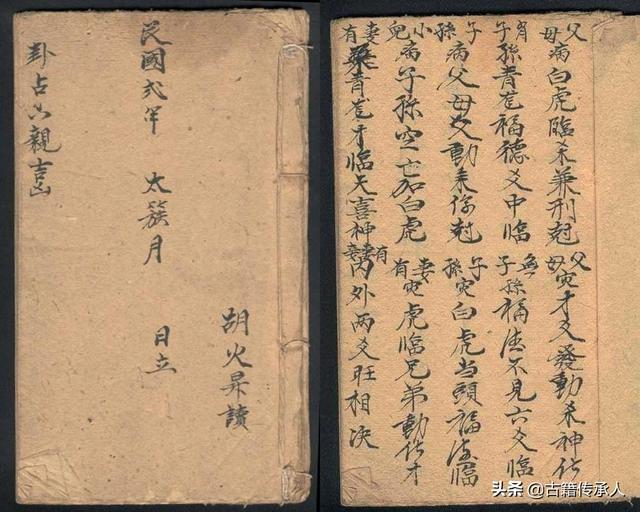 民國弍年 太簇月 日立
胡火昇讀
卦占六親吉凶
父母病白虎臨杀兼刑尅
父母灾才爻發動杀神化
有子孫青龍福德爻中臨
無子孫福德不見六爻臨
子孫病父母爻動来作尅
子孫灾白虎當頭福德臨
小兒病子孫空亡加白虎
有妻灾虎臨兄弟動化才
有妻青龍才臨天喜神
有妻妾内外两爻旺相决
头条 @古籍传承人